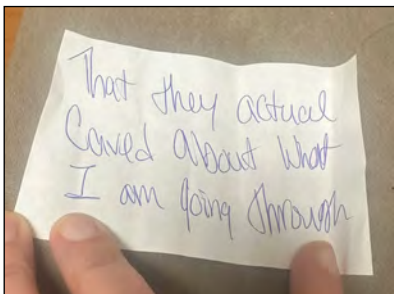 That they actual
Cared About What
I am going through